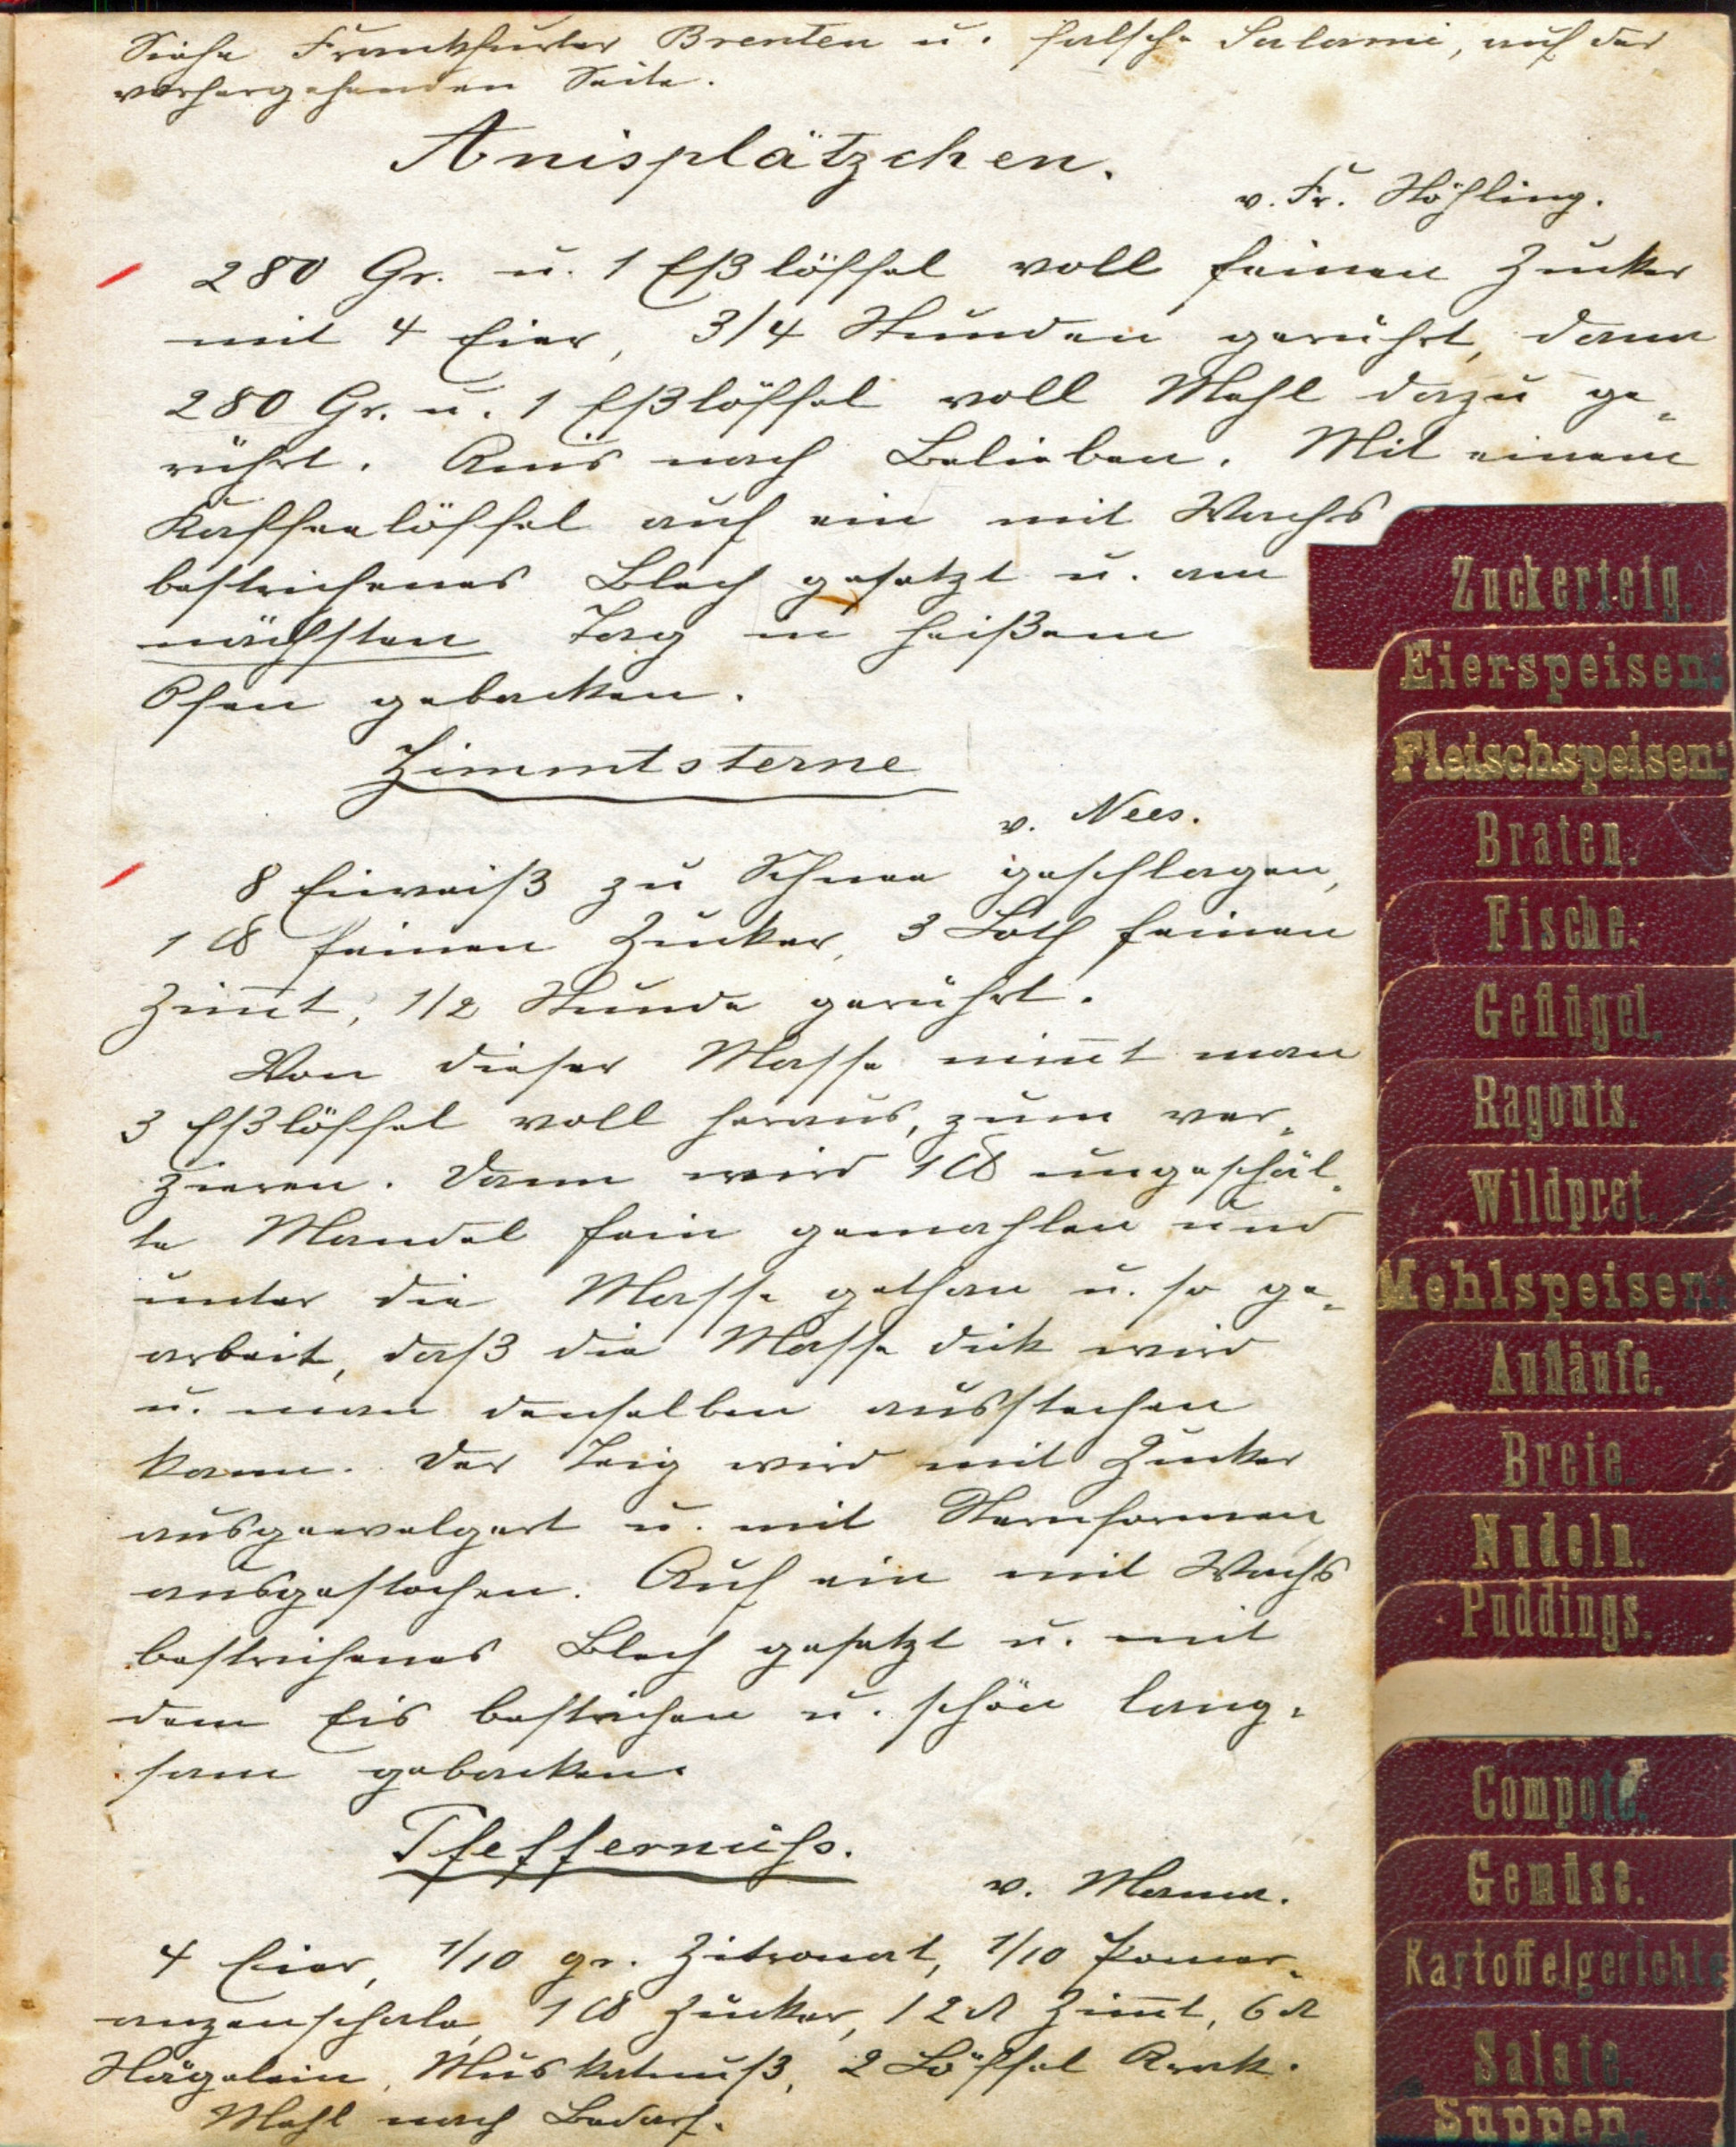 Siehe Frankfurter Brenten u. falsche Salami, auf der
vorhergehenden Seite.
Anisplätzchen.
v. Fr. Höhling.
280 Gr. u. 1 Eßlöffel voll feinen Zucker
mit 4 Eier, 3/4 Stunden gerührt, dann
280 Gr. u. 1 Eßlöffel voll Mehl dazu ge-
rührt. Anis nach Belieben. Mit einem
Kaffeelöffel auf ein mit Wachs
bestrichenes Blech gesetzt u. am
nächsten Tag in heißem
Ofen gebacken.
Zimmtsterne
v. Nees.
8 Eiweiß zu Schnee geschlagen,
1 ℔ feinen Zucker, 3 Loth feinen
Zim̅t, 1/2 Stunde gerührt.
Von dieser Masse nim̅t man
3 Eßlöffel voll heraus, zum ver-
zieren. Dann wird 1 ℔ ungeschäl-
te Mandel fein gemahlen und
unter die Masse gethan u. so ge-
arbeit, daß die Masse dick wird
u. man denselben ausstechen
kann. Der Teig wird mit Zucker
ausgewelgert u. mit Sternformen
ausgestochen. Auf ein mit Wachs
bestrichenes Blech gesetzt u. mit
dem Eis bestrichen u. schön lang-
sam gebacken.
Pfeffernuß.
v. Mama.
4 Eier, 1/10 gr. Zitronat, 1/10 Pomer-
anzenschale, 1 ℔ Zucker, 12 ₰ Zim̅t, 6 ₰
Nägelein, Muskatnuß, 2 Löffel Arak.
Mehl nach Bedarf.
Zuckerteig.
Eierspeisen:
Fleischspeisen:
Braten.
Fische.
Geflügel.
Ragouts.
Wildpret.
Mehlspeisen:
Aufläufe.
Breie.
Nudeln.
Puddings.
Compote.
Gemüse.
Kartoffelgerichte
Salate.
Suppen.